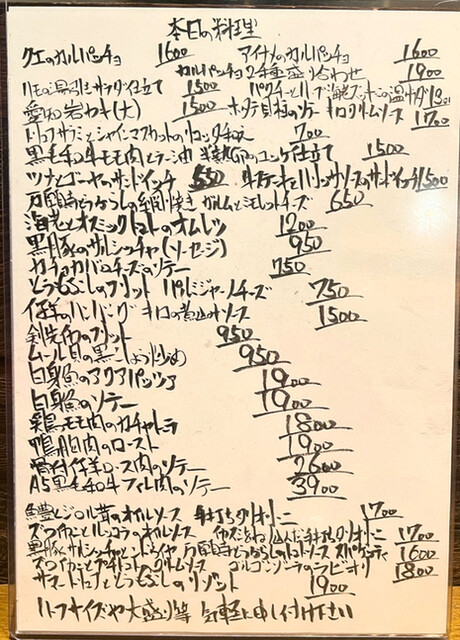 本日の料理
クエのカルパッチョ 1600 アイナメのカルパッチョ 1600
カルパッチョ2種盛り合わせ 1900
ハモの湯引きサラダ仕立て 1500
愛知岩カキ(大) 1500 ホタテ貝柱のソテー キロクリームソース 1700
トリュフサラミとシャインマスカットのリコッタチーズ 700
黒毛和牛モモ肉とラー油 半熟玉子のユッケ仕立て 1500
ツナとゴーヤのサンドイッチ 650 牛ステーキとトリュフソースのサンドイッチ 1500
万願寺とうがらしの網焼き ガルムとミモレットチーズ 650
海老とオスミックトマトのオムレツ 1200
黒豚のサルシッチャ(ソーセージ) 950
カチョカバロチーズのソテー 750
とうもろこしのフリット パルミジャーノチーズ 750
仔羊のハンバーグ 1500
剣先イカのフリット 950
ムール貝の黒こしょう炒め 950
白身魚のアクアパッツァ 1900
白身魚のソテー 1900
鶏モモ肉のカチャトラ 1800
鴨胸肉のロースト 1900
骨付仔羊ロース肉のソテー 2600
A5黒毛和牛フィレ肉のソテー 3900
鱧とジロル茸のオイルソース 手打ちタリオリーニ 1700
ズワイ蟹とルッコラのオイルソース 手打ちタリオリーニ 1700
黒豚サルシッチャとンドゥイヤ 万願寺とうがらしのトマトソース スパゲッティ 1600
ズワイ蟹とアーティチョークのクリームソース ゴルゴンゾーラのラビオリ 1800
サマートリュフととうもろこしのリゾット 1900
ハーフサイズや大盛り等 気軽に申し付け下さい